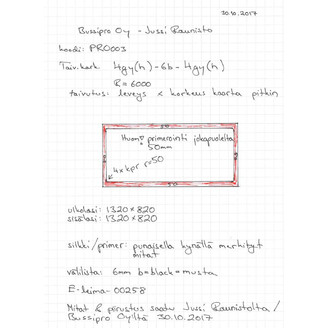 30.10.2017
Bussipro Oy - Jussi Raunisto
koodi: PRO003
Taiv.kork. 4gy(h)-6b-4gy(h)
R=6000
taivutus: leveys < korkeus kaarta pitkin
50
Huom! primerointi jokapuolelta
50mm
50
50
4xkpr r=50
50
ulkolasi: 1320 x 820
sisälasi: 1320 x 820
silkki/primer: punaisella kynällä merkityt
mitat
välilista: 6mm b=black=musta
E-leima-00258
Mitat & perustus saatu Jussi Raunistolta/
Bussipro Oy:ltä 30.10.2017